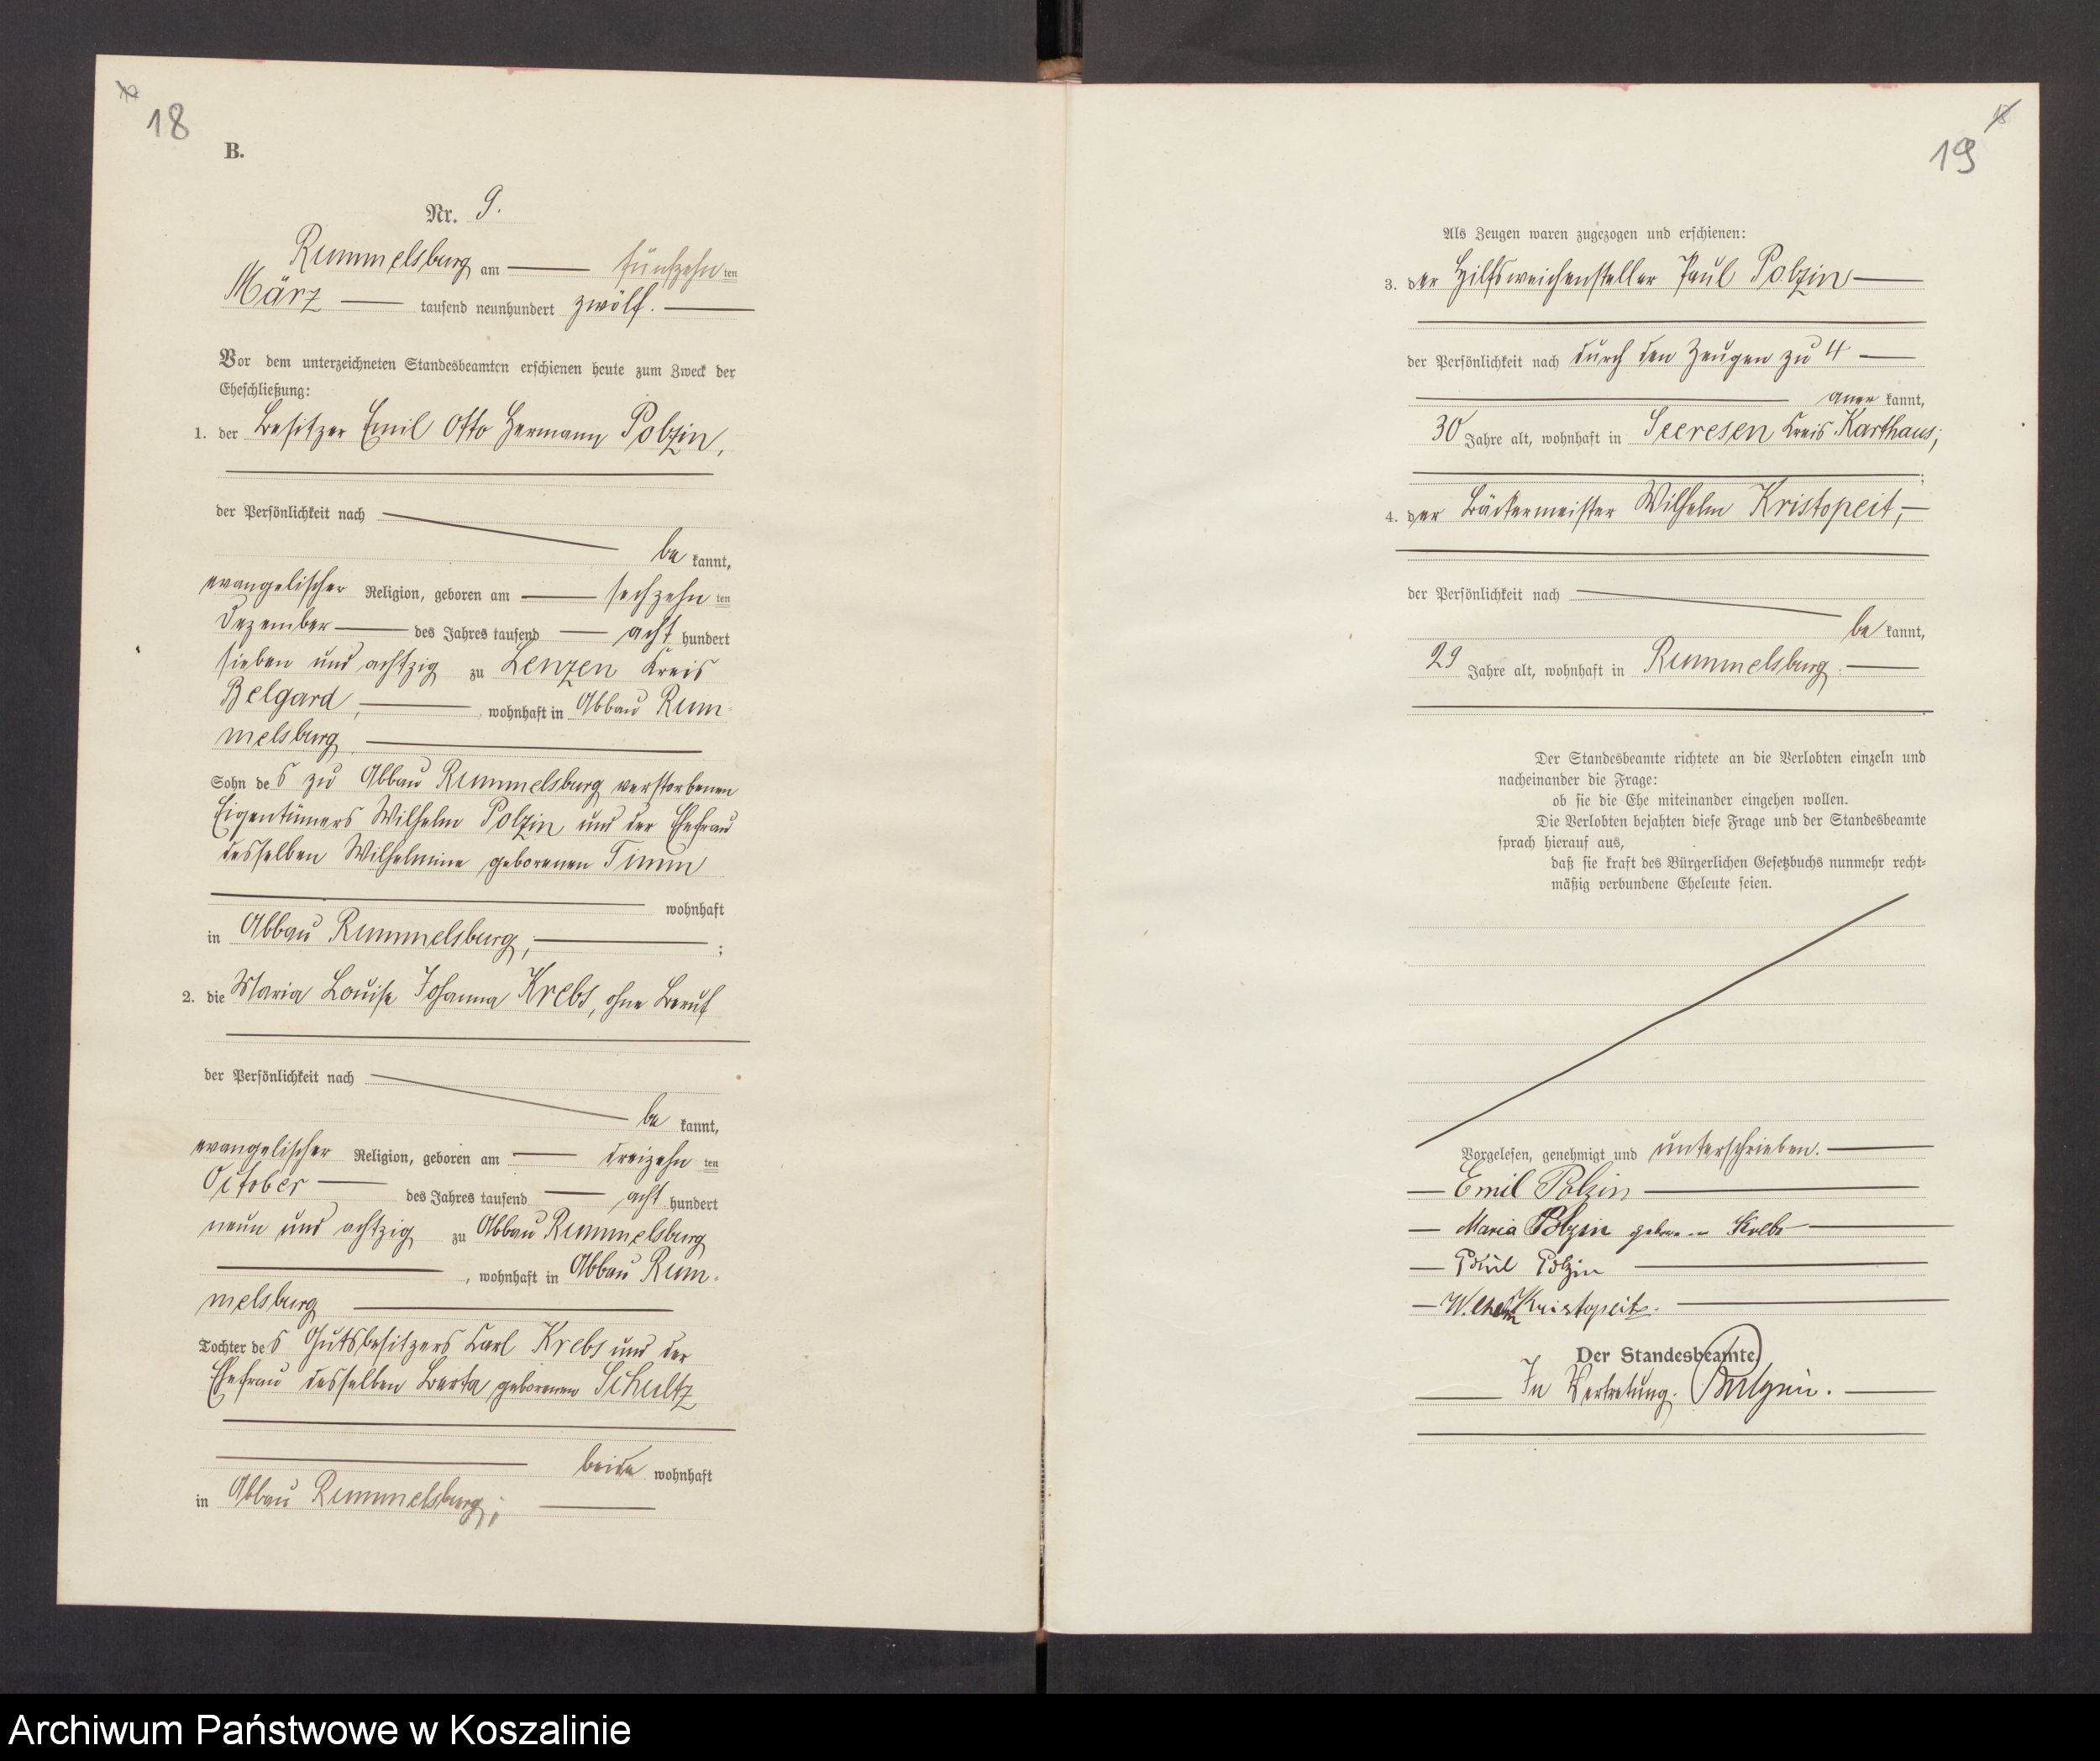 18
B.
Nr. 9.
Rummelsburg am fünfzehn ten
März tausend neunhundert zwölf.
Vor dem unterzeichneten Standesbeamten erschienen heute zum Zweck der
Eheschließung:
1. der Besitzer Emil Otto Hermann Polzin,
der Persönlichkeit nach
be kannt,
evangelischer Religion, geboren am sechzehn ten
Dezember des Jahres tausend acht hundert
sieben und achtzig zu Lenzen Kreis
Belgard, wohnhaft in Abbau Rum-
melsburg
Sohn des zu Abbau Rummelsburg verstorbenen
Eigentümers Wilhelm Polzin und der Ehefrau
desselben Wilhelmine geborenen Timm
wohnhaft
in Abbau Rummelsburg, ;
2. die Maria Louise Johanna Krebs, ohne Beruf
der Persönlichkeit nach
be kannt,
evangelischer Religion, geboren am dreizehn ten
October des Jahres tausend acht hundert
neun und achtzig zu Abbau Rummelsburg
, wohnhaft in Abbau Rum-
melsburg
Tochter des Gutsbesitzers Carl Krebs und der
Ehefrau desselben Berta geborenen Schultz
beide wohnhaft
in Abbau Rummelsburg;
19
Als Zeugen waren zugezogen und erschienen:
3. der Hilfsweichensteller Paul Polzin
der Persönlichkeit nach durch den Zeugen zu 4
aner kannt,
30 Jahre alt, wohnhaft in Seeresen Kreis Karthaus;
4. der Bäckermeister Wilhelm Kristopeit,
der Persönlichkeit nach
be kannt,
29 Jahre alt, wohnhaft in Rummelsburg.
Der Standesbeamte richtete an die Verlobten einzeln und
nacheinander die Frage:
ob sie die Ehe miteinander eingehen wollen.
Die Verlobten bejahten diese Frage und der Standesbeamte
sprach hierauf aus,
daß sie kraft des Bürgerlichen Gesetzbuchs nunmehr recht-
mäßig verbundene Eheleute seien.
Vorgelesen, genehmigt und unterschrieben.
Emil Polzin
Maria Polzin geborene Krebs
Paul Polzin
Wilhelm Kristopeit.
Der Standesbeamte
In Vertretung.
Archiwum Państwowe w Koszalinie